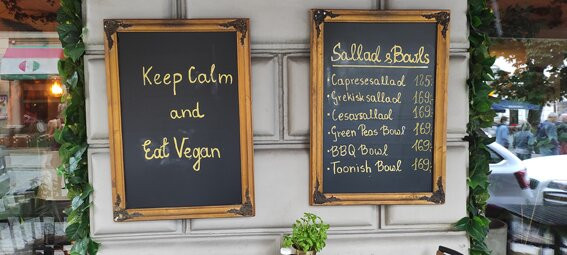 Keep Calm
and
Eat Vegan
Sallad & Bowls
• Capresesallad 125:-
• Grekisksallad 169:-
• Cesarsallad 169:-
• Green Peas Bowl 169:-
• BBQ Bowl 169:-
• Toonish Bowl 169:-